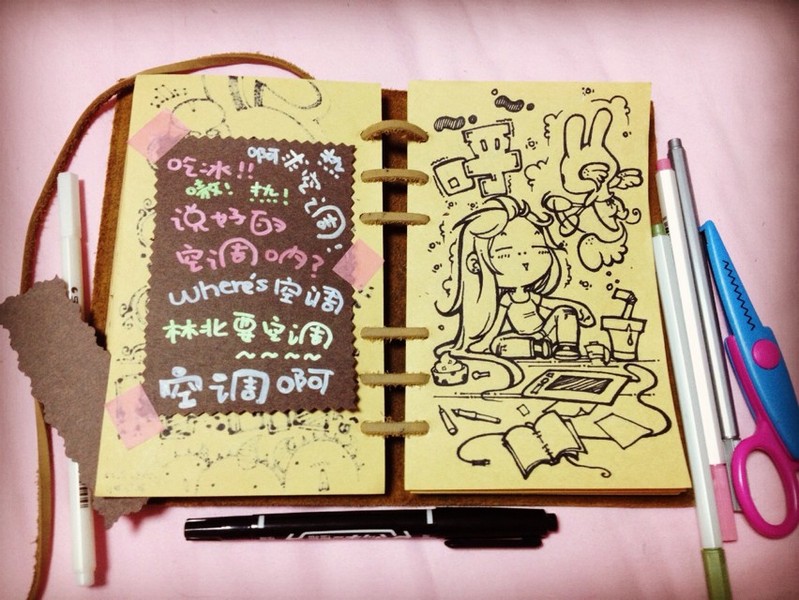 吃冰!!
热!
说好的
空调呐?
where's空调
林北要空调
空调啊
啊
热
空调!